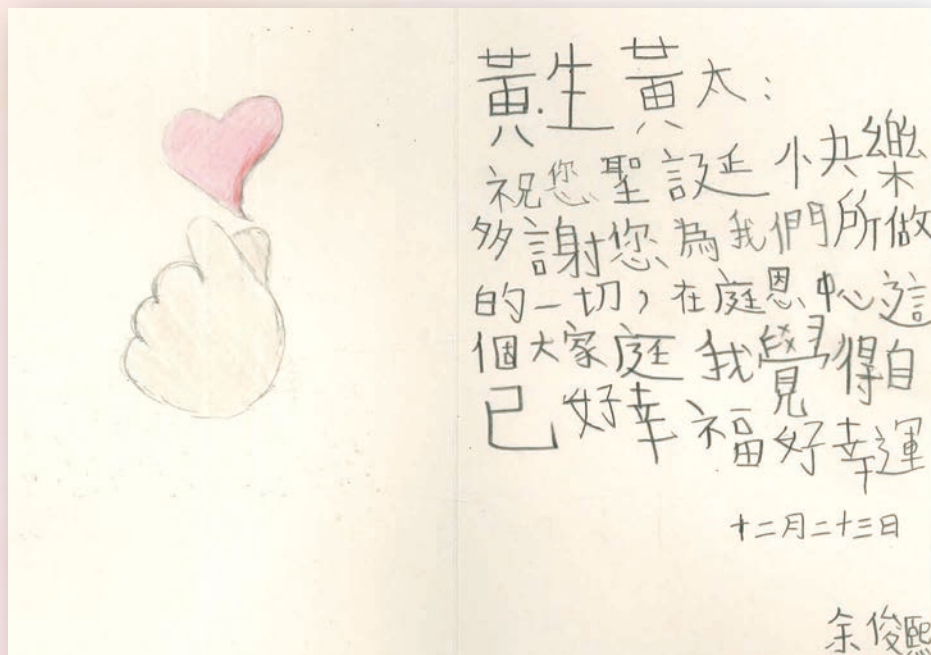 黃生 黃太：
祝您聖誕快樂
多謝您為我們所做
的一切，在庭恩中心這
個大家庭我覺得自
己好幸福好幸運
十二月二十三日
余俊熙